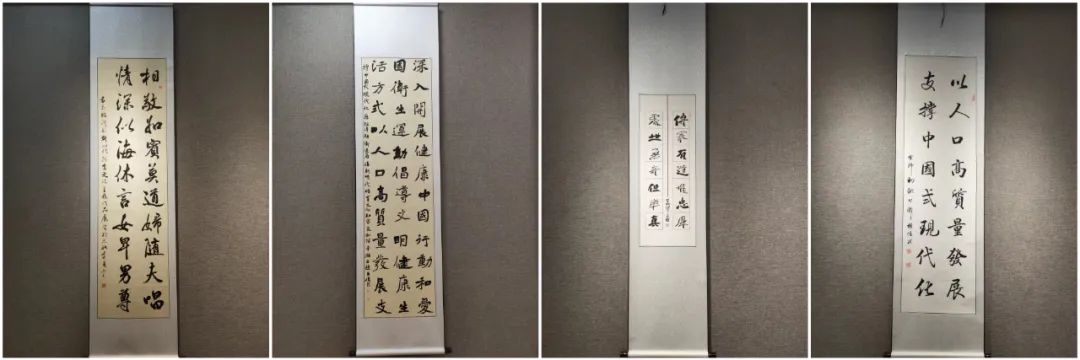 相敬如賓莫道婦隨夫唱
情深似海休言女卑男尊
深入開展健康中國行動和愛
國衛生運動倡導文明健康生
活方式以人口高質量發展支
撐中國式現代化
傳家有道惟忠厚
處世無奇但率真
以人口高質量發展
支撐中國式現代化